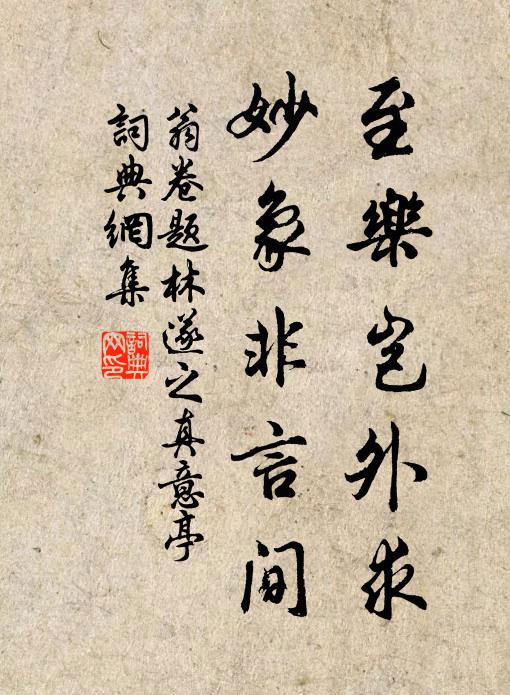 至樂岂外求
妙象非言间
翁卷题林遂之真意亭
詞典網集
詞典
网印